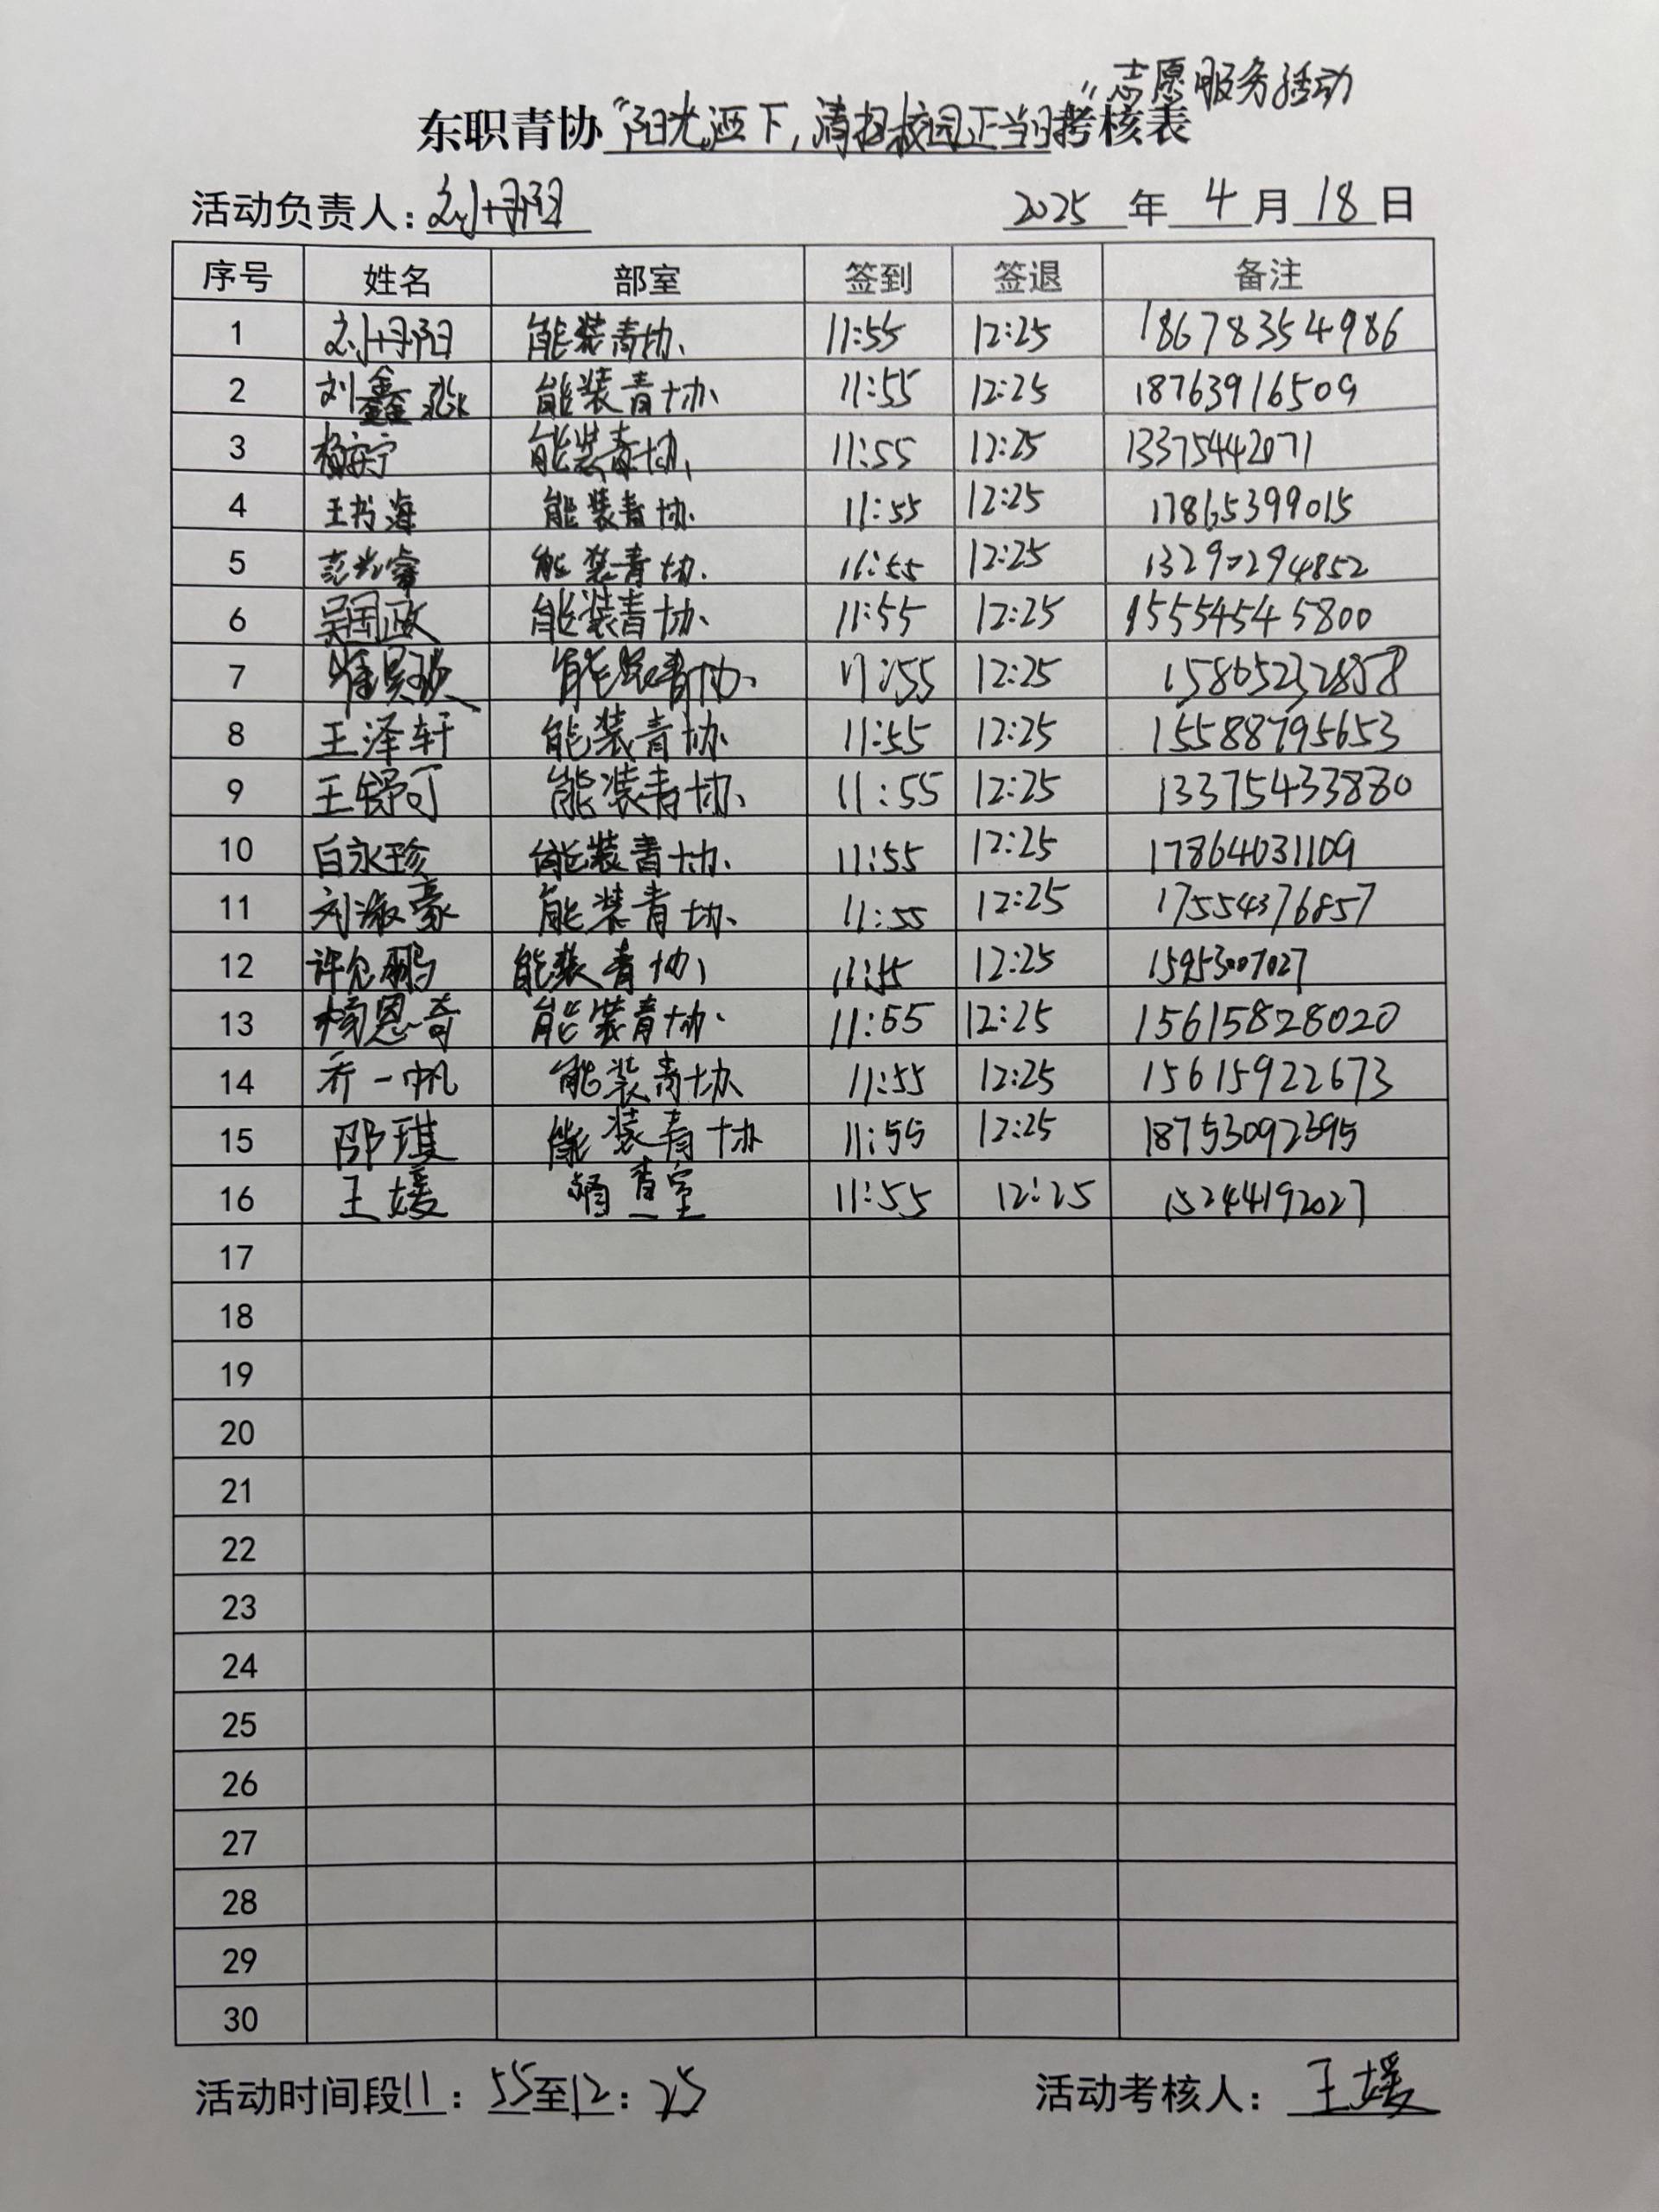 "志愿服务活动
东职青协"阳光洒下,清扫校园正当时考核表
活动负责人:刘丹阳 2025年4月18日
序号 姓名 部室 签到 签退 备注
1 刘丹阳 能装青协 11:55 12:25 18678354986
2 刘鑫淼 能装青协 11:55 12:25 18763916509
3 杨安宁 能装青协 11:55 12:25 13375442071
4 王书海 能装青协 11:55 12:25 17865399015
5 能装青协 11:55 12:25 13290294852
6 吴国政 能装青协 11:55 12:25 15554545800
7 能装青协 11:55 12:25 15865232858
8 王泽轩 能装青协 11:55 12:25 15588795653
9 王舒可 能装青协 11:55 12:25 13375433880
10 白永珍 能装青协 11:55 12:25 17864031109
11 刘淑豪 能装青协 11:55 12:25 17554376857
12 能装青协 11:55 12:25 15953007027
13 杨恩奇 能装青协 11:55 12:25 15615828020
14 乔一帆 能装青协 11:55 12:25 15615922673
15 邵琪 能装青协 11:55 12:25 18753092395
16 王媛 查室 11:55 12:25 15244192027
17
18
19
20
21
22
23
24
25
26
27
28
29
30
活动时间段11:55至12:25 活动考核人:王媛